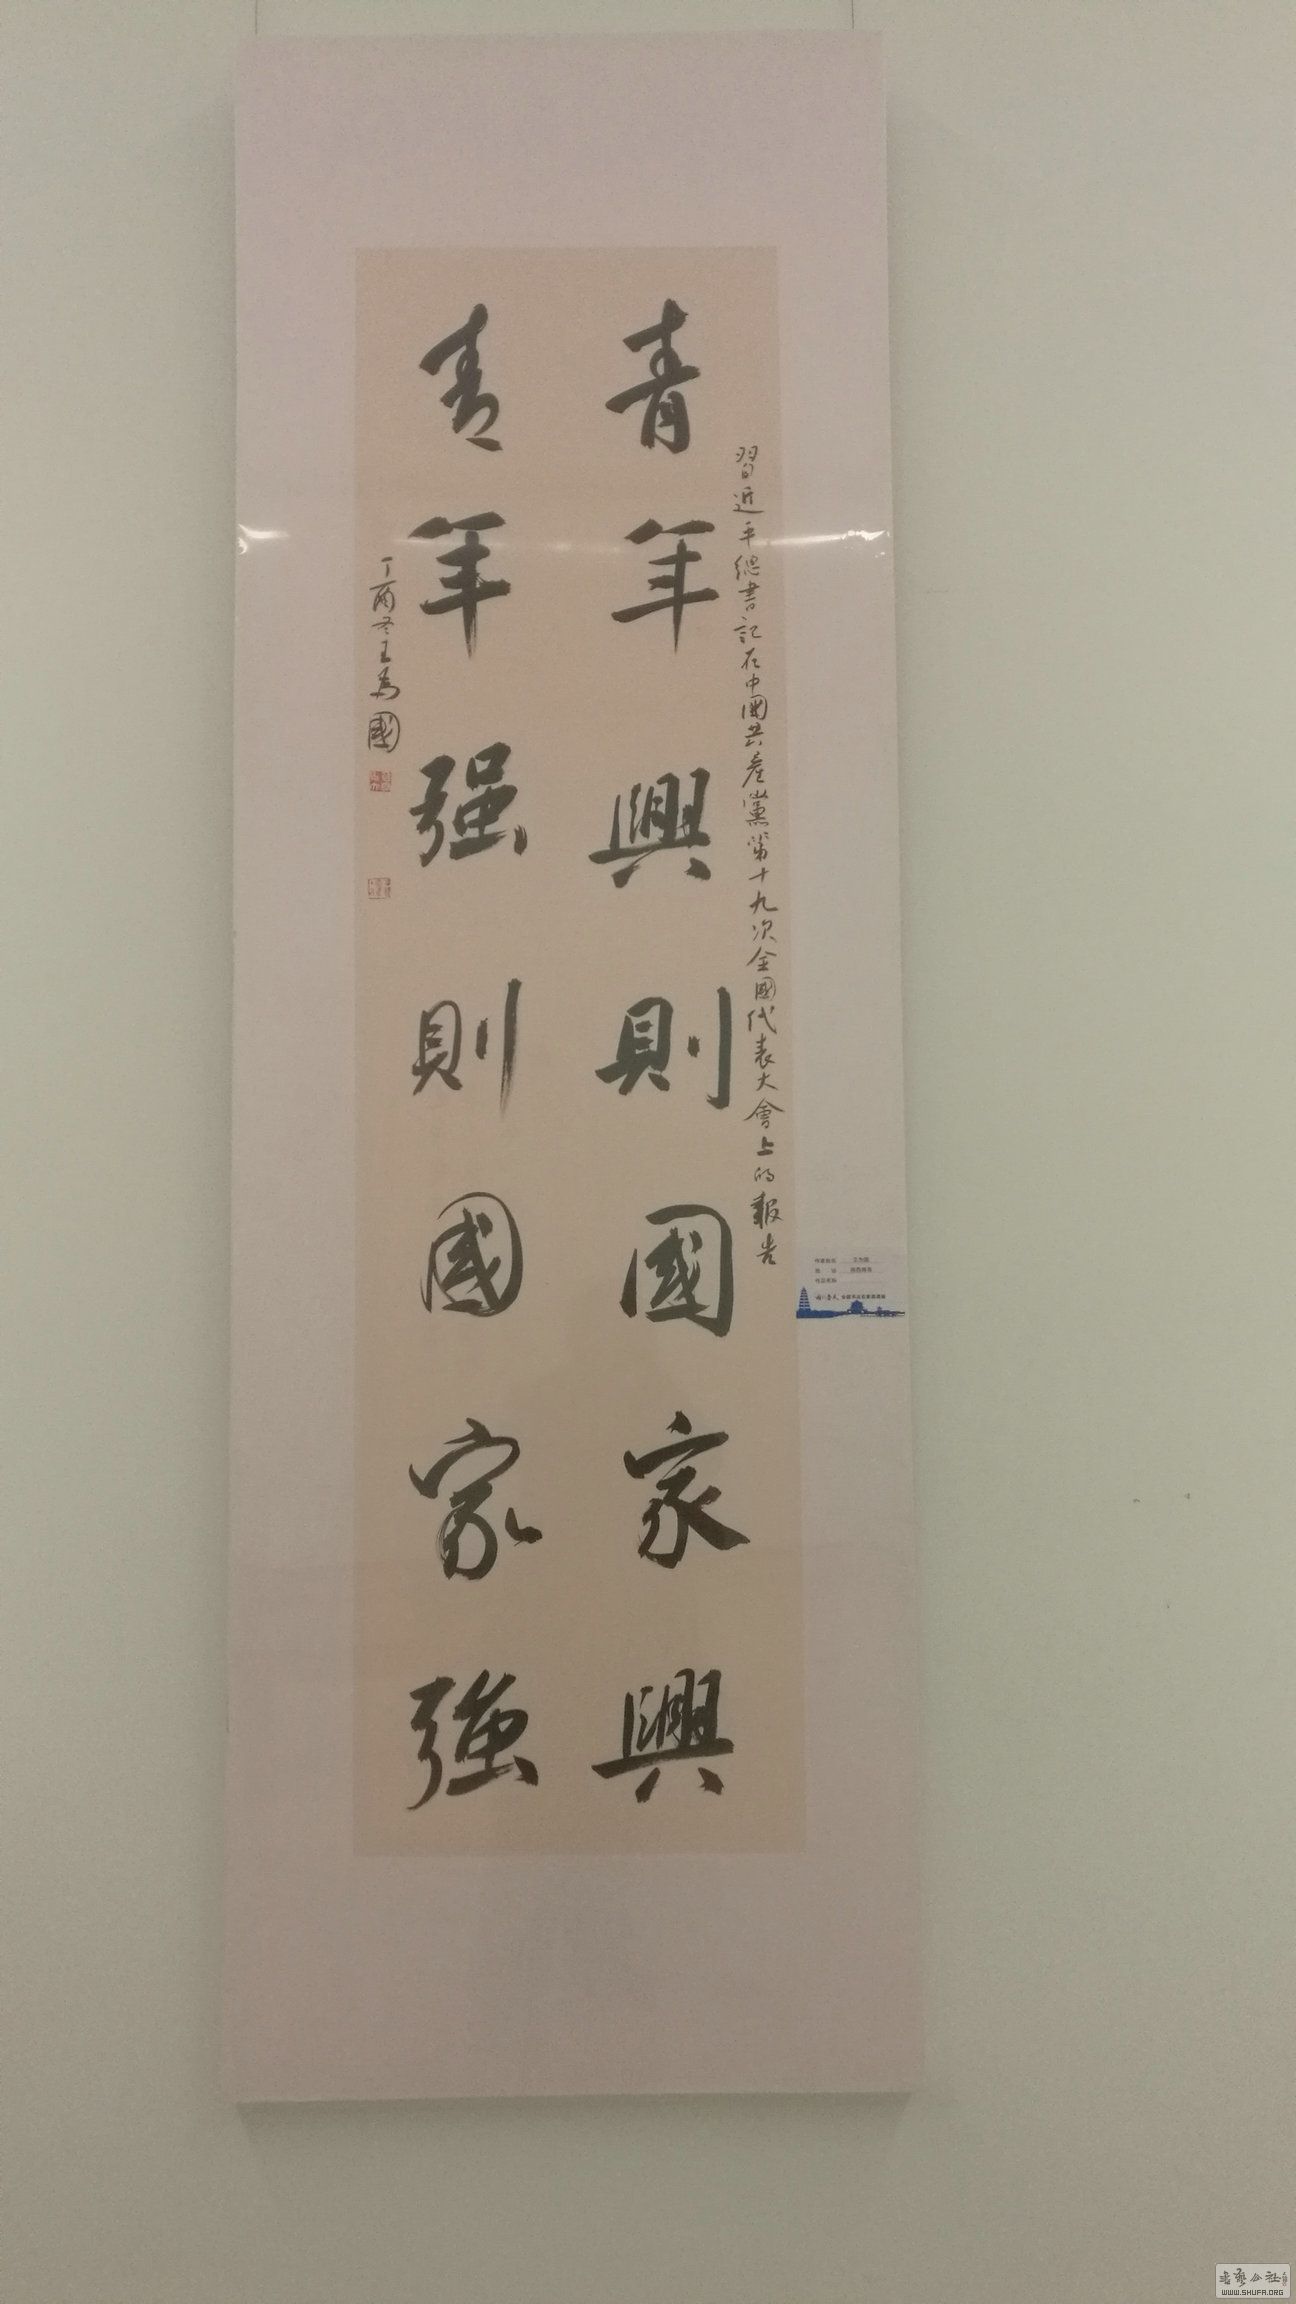 習近平總書記在中國共產黨第十九次全國代表大會上的報告
青年興則國家興
青年强則國家強
丁酉冬王為國
WWW.SHUFA.ORG